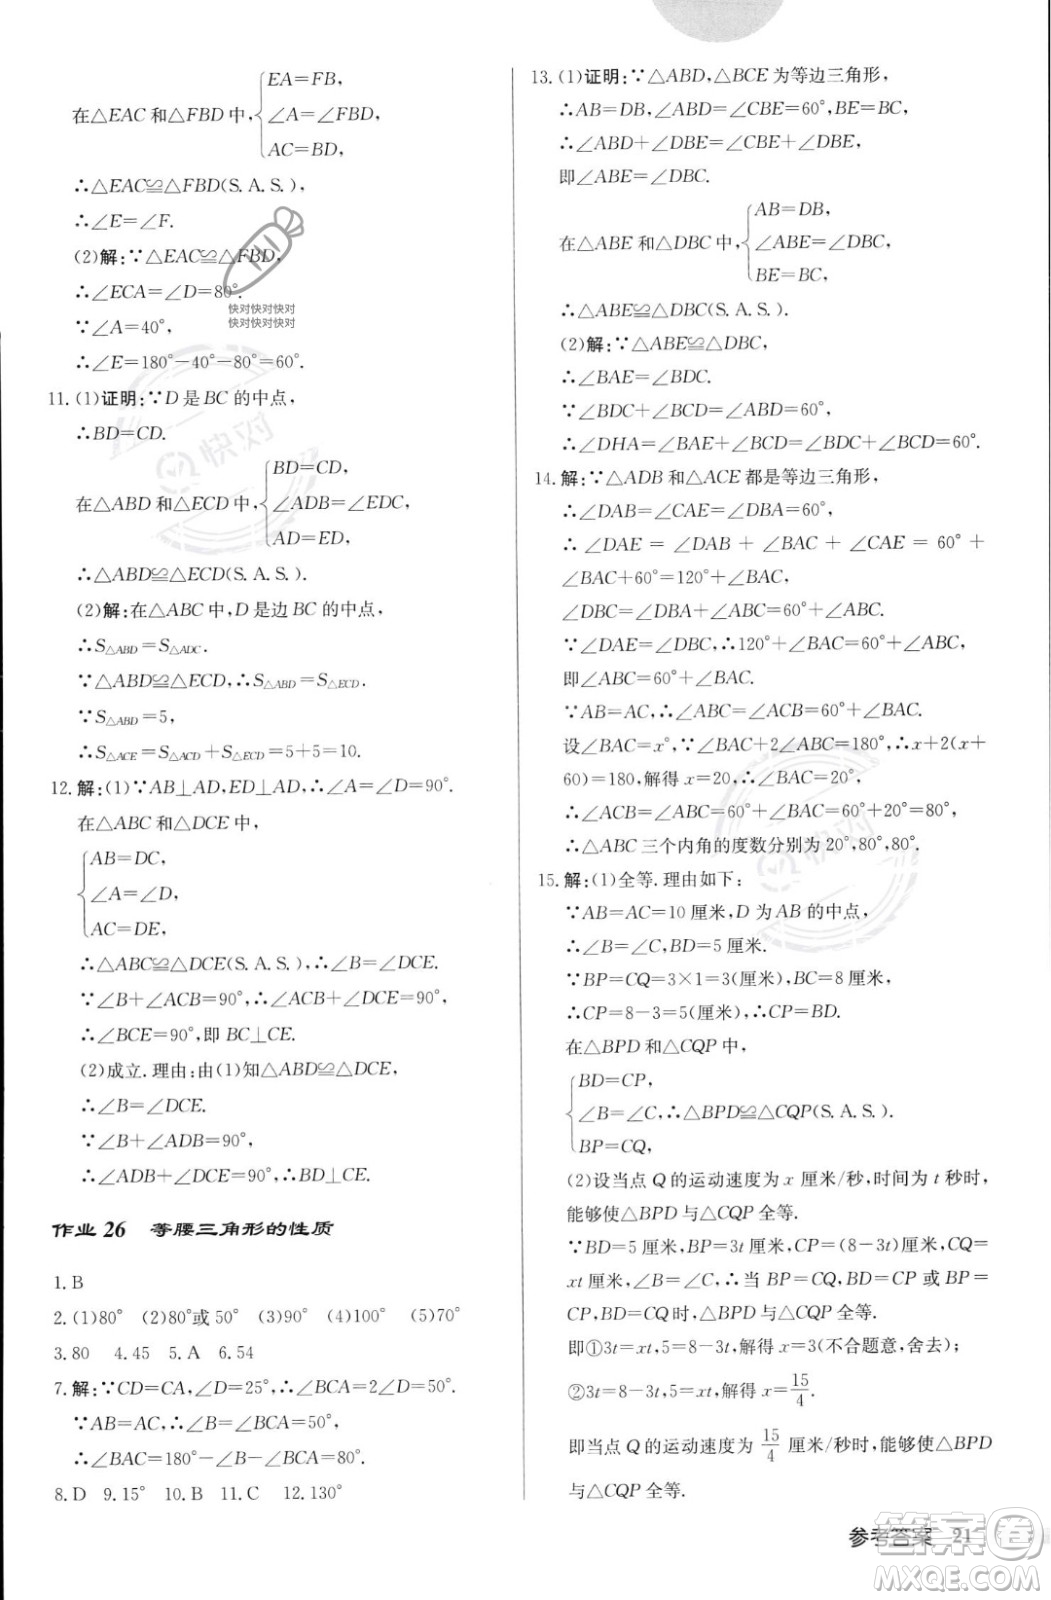 EA=FB,
在△EAC 和△FBD 中, ∠A=∠FBD,
AC=BD,
∴△EAC≌△FBD(S. A. S.),
∴∠E=∠F.
(2)解:∵△EAC≌△FBD,
∴∠ECA=∠D=80°.
快对快对快对
快对快对快对
∵∠A=40°,
∴∠E=180°-40°-80°=60°.
11.(1)证明:∵D 是 BC 的中点,
∴BD=CD.
快对
BD=CD,
在△ABD 和△ECD 中, ∠ADB=∠EDC,
AD=ED,
∴△ABD≌△ECD(S. A. S.).
(2)解:在△ABC 中,D 是边 BC 的中点,
∴S△ABD=S△ADC.
∵△ABD≌△ECD,∴S△ABD=S△ECD.
∵S△ABD=5,
∴S△ACE=S△ACD+S△ECD=5+5=10.
12.解:(1)∵AB⊥AD,ED⊥AD,∴∠A=∠D=90°.
在△ABC 和△DCE 中,
AB=DC,
∠A=∠D,
AC=DE,
∴△ABC≌△DCE(S. A. S.),
∵∠B+∠ACB=90°,∴∠ACB+∠DCE=90°,
∴∠BCE=90°,即 BC⊥CE.
(2)成立.理由:由(1)知△ABD≌△DCE,
∴∠B=∠DCE.
∵∠B+∠ADB=90°,
∴∠ADB+∠DCE=90°,∴BD⊥CE.
作业 26 等腰三角形的性质
1.B
2.(1)80° (2)80°或 50° (3)90° (4)100° (5)70°
3.80 4.45 5.A 6.54
7.解:∵CD=CA,∠D=25°,∴∠BCA=2∠D=50°.
∵AB=AC,∴∠B=∠BCA=50°,
∴∠BAC=180°-∠B-∠BCA=80°.
8.D 9.15° 10.B 11.C 12.130°
13.(1)证明:∵△ABD,△BCE 为等边三角形,
∴AB=DB,∠ABD=∠CBE=60°,BE=BC,
∴∠ABD+∠DBE=∠CBE+∠DBE,
即∠ABE=∠DBC.
AB=DB,
在△ABE 和△DBC 中, ∠ABE=∠DBC,
BE=BC,
∴△ABE≌△DBC(S. A. S.).
(2)解:∵△ABE≌△DBC,
∴∠BAE=∠BDC.
∵∠BDC+∠BCD=∠ABD=60°,
∴∠DHA=∠BAE+∠BCD=∠BDC+∠BCD=60°.
14.解:∵△ADB 和△ACE 都是等边三角形,
∴∠DAB=∠CAE=∠DBA=60°,
∴∠DAE=∠DAB+∠BAC+∠CAE=60°+
∠BAC+60°=120°+∠BAC,
∠DBC=∠DBA+∠ABC=60°+∠ABC.
∵∠DAE=∠DBC,∴120°+∠BAC=60°+∠ABC,
即∠ABC=60°+∠BAC.
∵AB=AC,∴∠ABC=∠ACB=60°+∠BAC.
设∠BAC=x°,∵∠BAC+2∠ABC=180°,∴x+2(x+
60)=180,解得 x=20,∴∠BAC=20°,
∴∠ACB=∠ABC=60°+∠BAC=60°+20°=80°,
∴△ABC 三个内角的度数分别为 20°,80°,80°.
快对
15.解:(1)全等.理由如下:
∵AB=AC=10 厘米,D 为 AB 的中点,
∴∠B=∠C,BD=5 厘米.
∵BP=CQ=3×1=3(厘米),BC=8 厘米,
∴CP=8-3=5(厘米),∴CP=BD.
在△BPD 和△CQP 中,
BD=CP,
∠B=∠C,∴△BPD≌△CQP(S. A. S.).
BP=CQ,
(2)设当点 Q 的运动速度为 x 厘米/秒,时间为 t 秒时,
能够使△BPD 与△CQP 全等.
∵BD=5 厘米,BP=3t 厘米,CP=(8-3t)厘米,CQ=
xt 厘米,∠B=∠C,∴当 BD=CP 或 BP=
CP,BD=CQ 时,△BPD 与△CQP 全等.
即①3t=xt,5=8-3t,解得 x=3(不合题意,舍去);
②3t=8-3t,5=xt,解得 x=15/4.
即当点 Q 的运动速度为 15/4 厘米/秒时,能够使△BPD
与△CQP 全等.
参考答案 21
答案圈
MXQE.COM